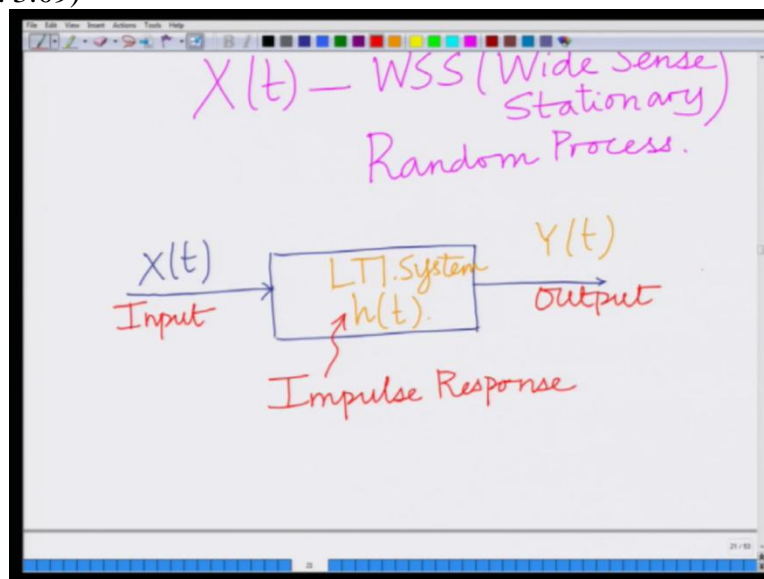 : 3:09)
File Edit View Insert Actions Tools Help
X(t) — WSS (Wide Sense
Stationary)
Random Process.
X(t)
Input
LTI. System
h(t).
Y(t)
Output
Impulse Response
21 / 53
21